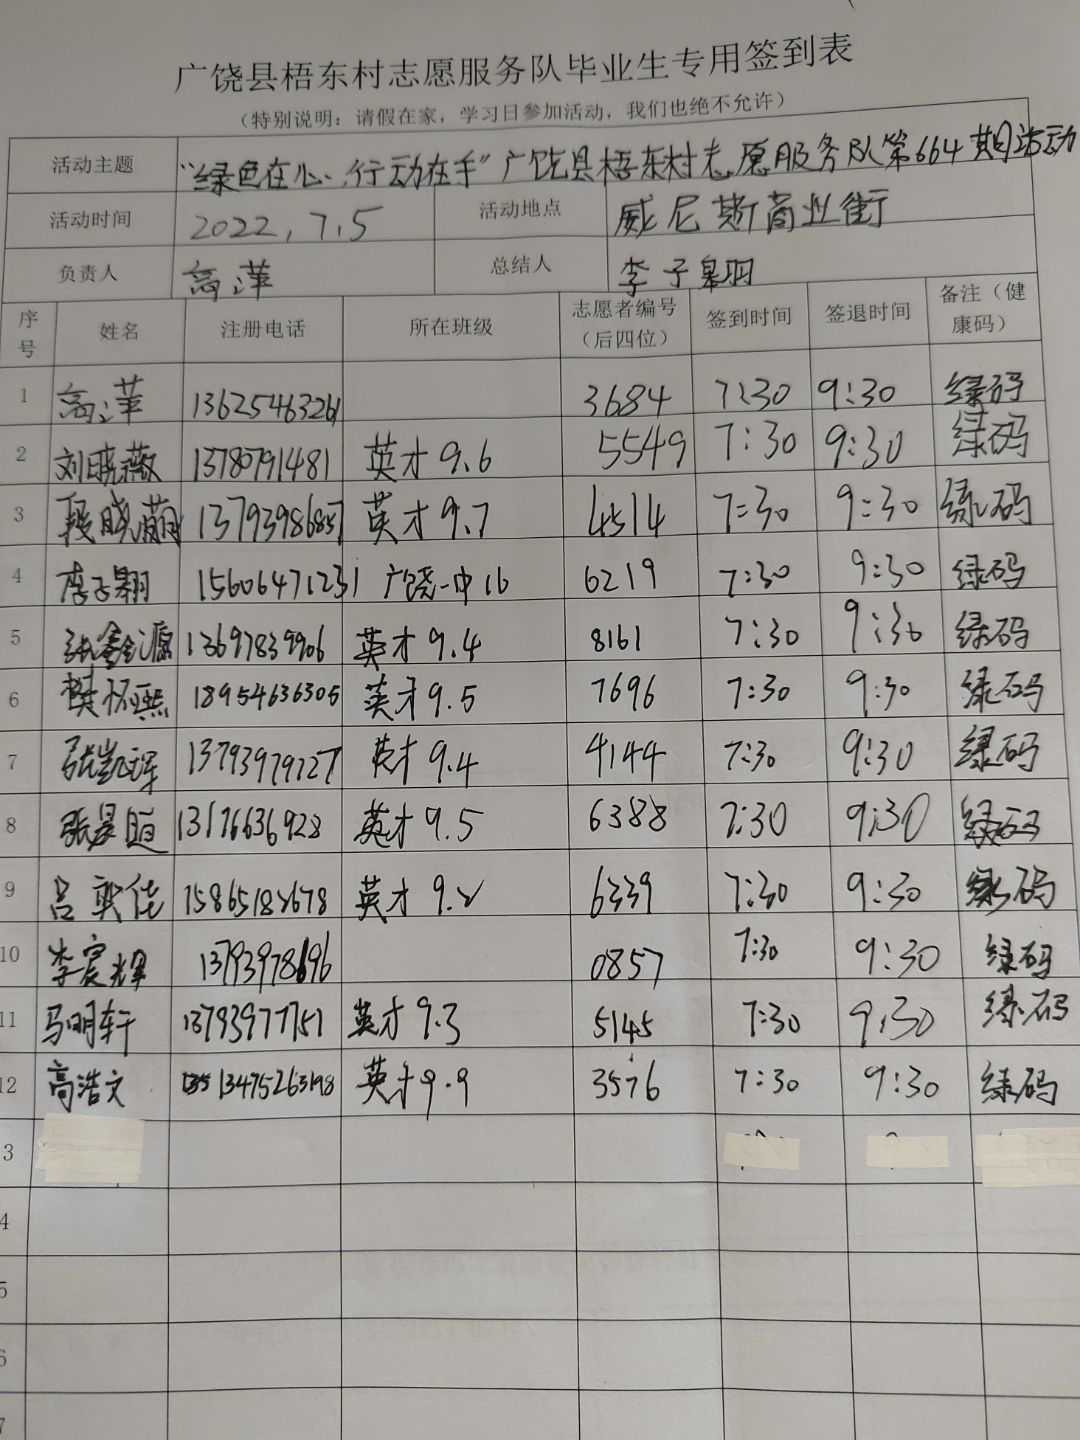 广饶县梧东村志愿服务队毕业生专用签到表
（特别说明：请假在家，学习日参加活动，我们也绝不允许）
活动主题 “绿色在心、行动在手”广饶县梧东村志愿服务队第664期活动
活动时间 2022.7.5 活动地点 威尼斯商业街
负责人 高萍 总结人 李子翱
序号 姓名 注册电话 所在班级 志愿者编号（后四位） 签到时间 签退时间 备注（健康码）
1 高萍 13625463261 3684 7:30 9:30 绿码
2 刘晓薇 13780791481 英才9.6 5549 7:30 9:30 绿码
3 段晓萌 13793986857 英才9.7 4514 7:30 9:30 绿码
4 李子翱 15606471231 广饶一中16 6219 7:30 9:30 绿码
5 张鑫源 13697839906 英才9.4 8161 7:30 9:30 绿码
6 樊怀熙 18954636305 英才9.5 7696 7:30 9:30 绿码
7 张凯泽 13793979727 英才9.4 4144 7:30 9:30 绿码
8 张景 13176636928 英才9.5 6388 7:30 9:30 绿码
9 吕奕佳 15865182678 英才9.2 6339 7:30 9:30 绿码
10 李宸辉 13793978696 0857 7:30 9:30 绿码
11 马明轩 13793977751 英才9.3 5145 7:30 9:30 绿码
12 高浩文 13475263198 英才9.9 3576 7:30 9:30 绿码
3
4
5
6
7